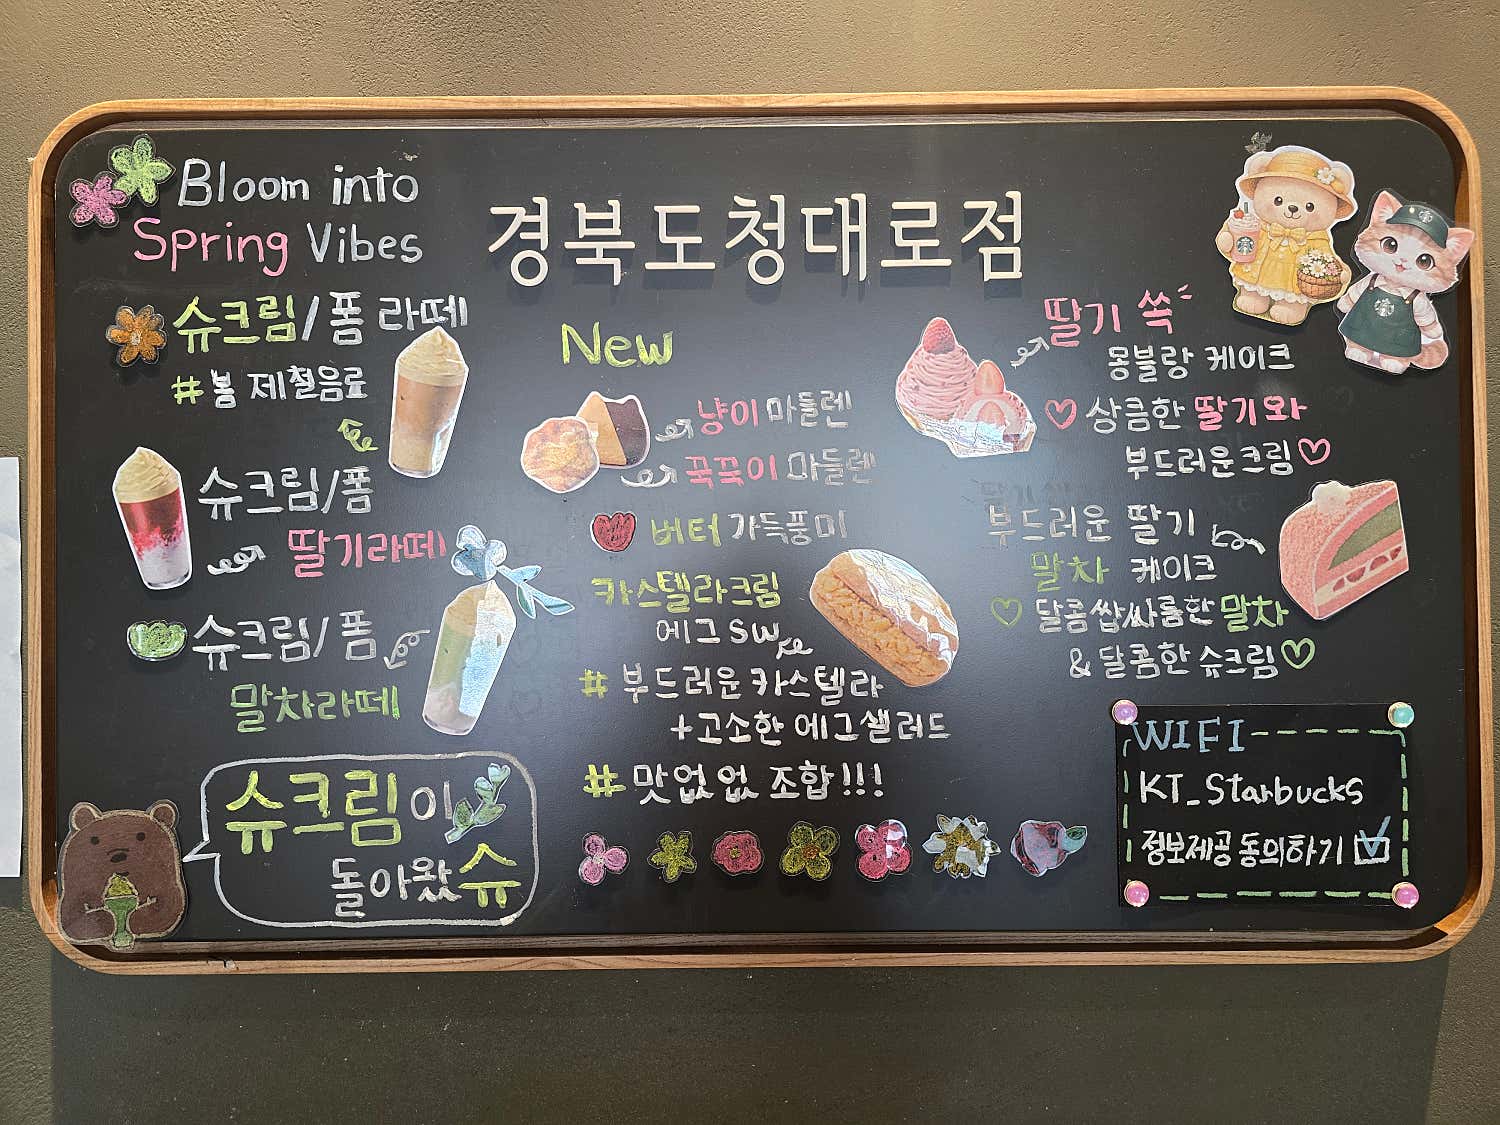 Bloom into
Spring Vibes
경북도청대로점
슈크림/폼 라떼
#봄 제철음료
슈크림/폼
딸기라떼
슈크림/폼
말차라떼
슈크림이
돌아왔슈
New
냥이 마들렌
꾹꾹이 마들렌
버터 가득풍미
카스텔라크림
에그SW
# 부드러운 카스텔라
+고소한 에그샐러드
# 맛없없 조합!!!
딸기 쏙
몽블랑 케이크
상큼한 딸기와
부드러운크림
부드러운 딸기
말차 케이크
달콤쌉싸름한 말차
& 달콤한 슈크림
WIFI
KT_Starbucks
정보제공 동의하기